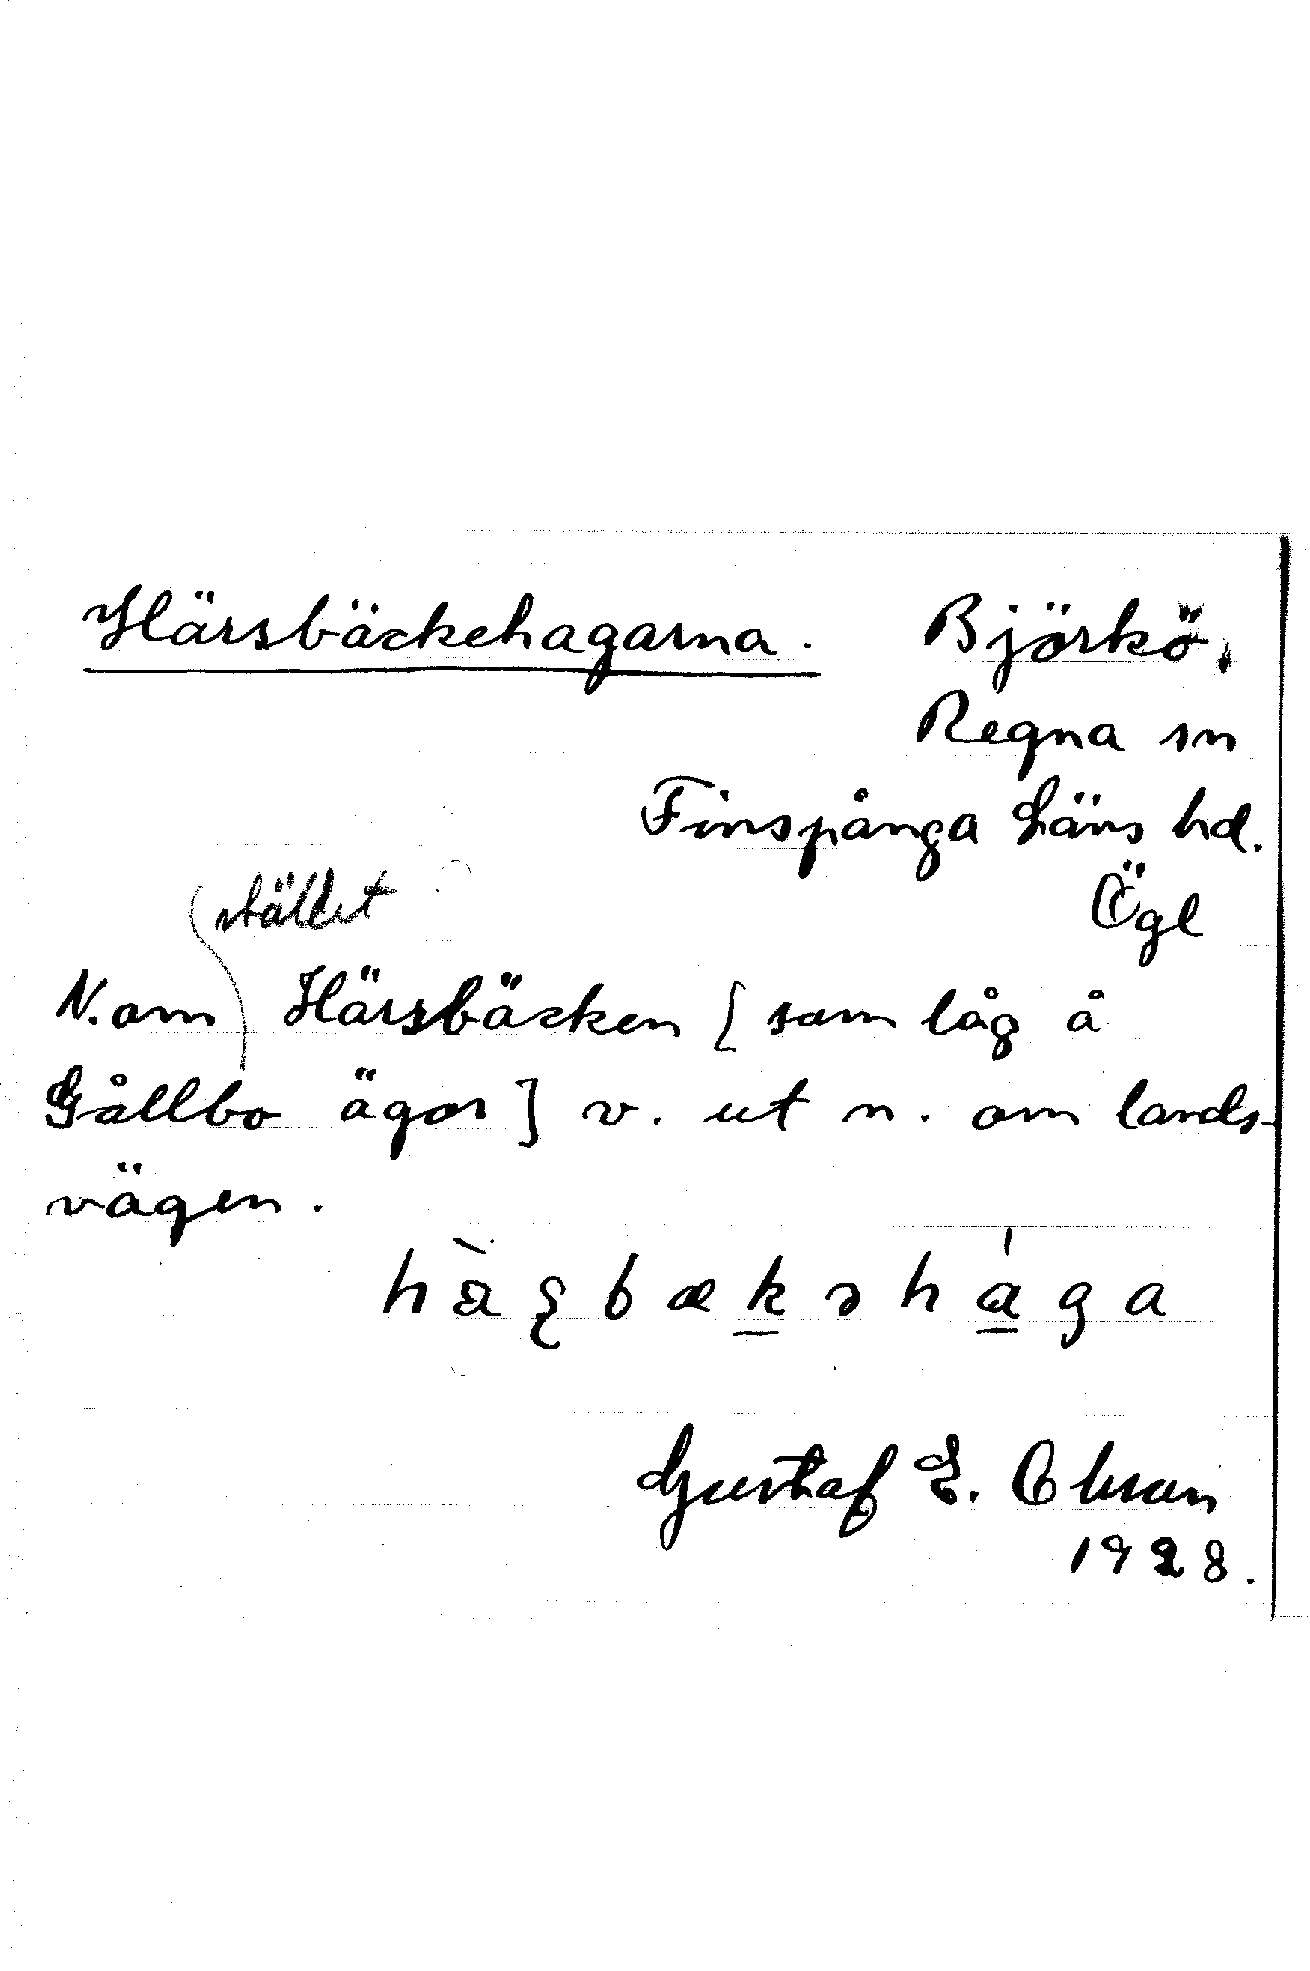 Härsbäckehagarna. Björkö,
Regna sn
Finspånga läns hd.
Ögl
stället
N. om Härsbäcken [som låg å
Gållbo ägor] v. ut n. om lands-
vägen.
hàʂbækəhaga
Gustaf E. Olson
1928.